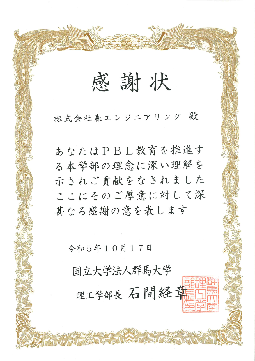 感謝状
株式会社東エンジニアリング 殿
あなたはPBL教育を推進す
る本学部の理念に深い理解を
示されご貢献をなされました
ここにそのご厚意に対して深
甚なる感謝の意を表します
令和5年10月17日
国立大学法人群馬大学
理工学部長 石間経章